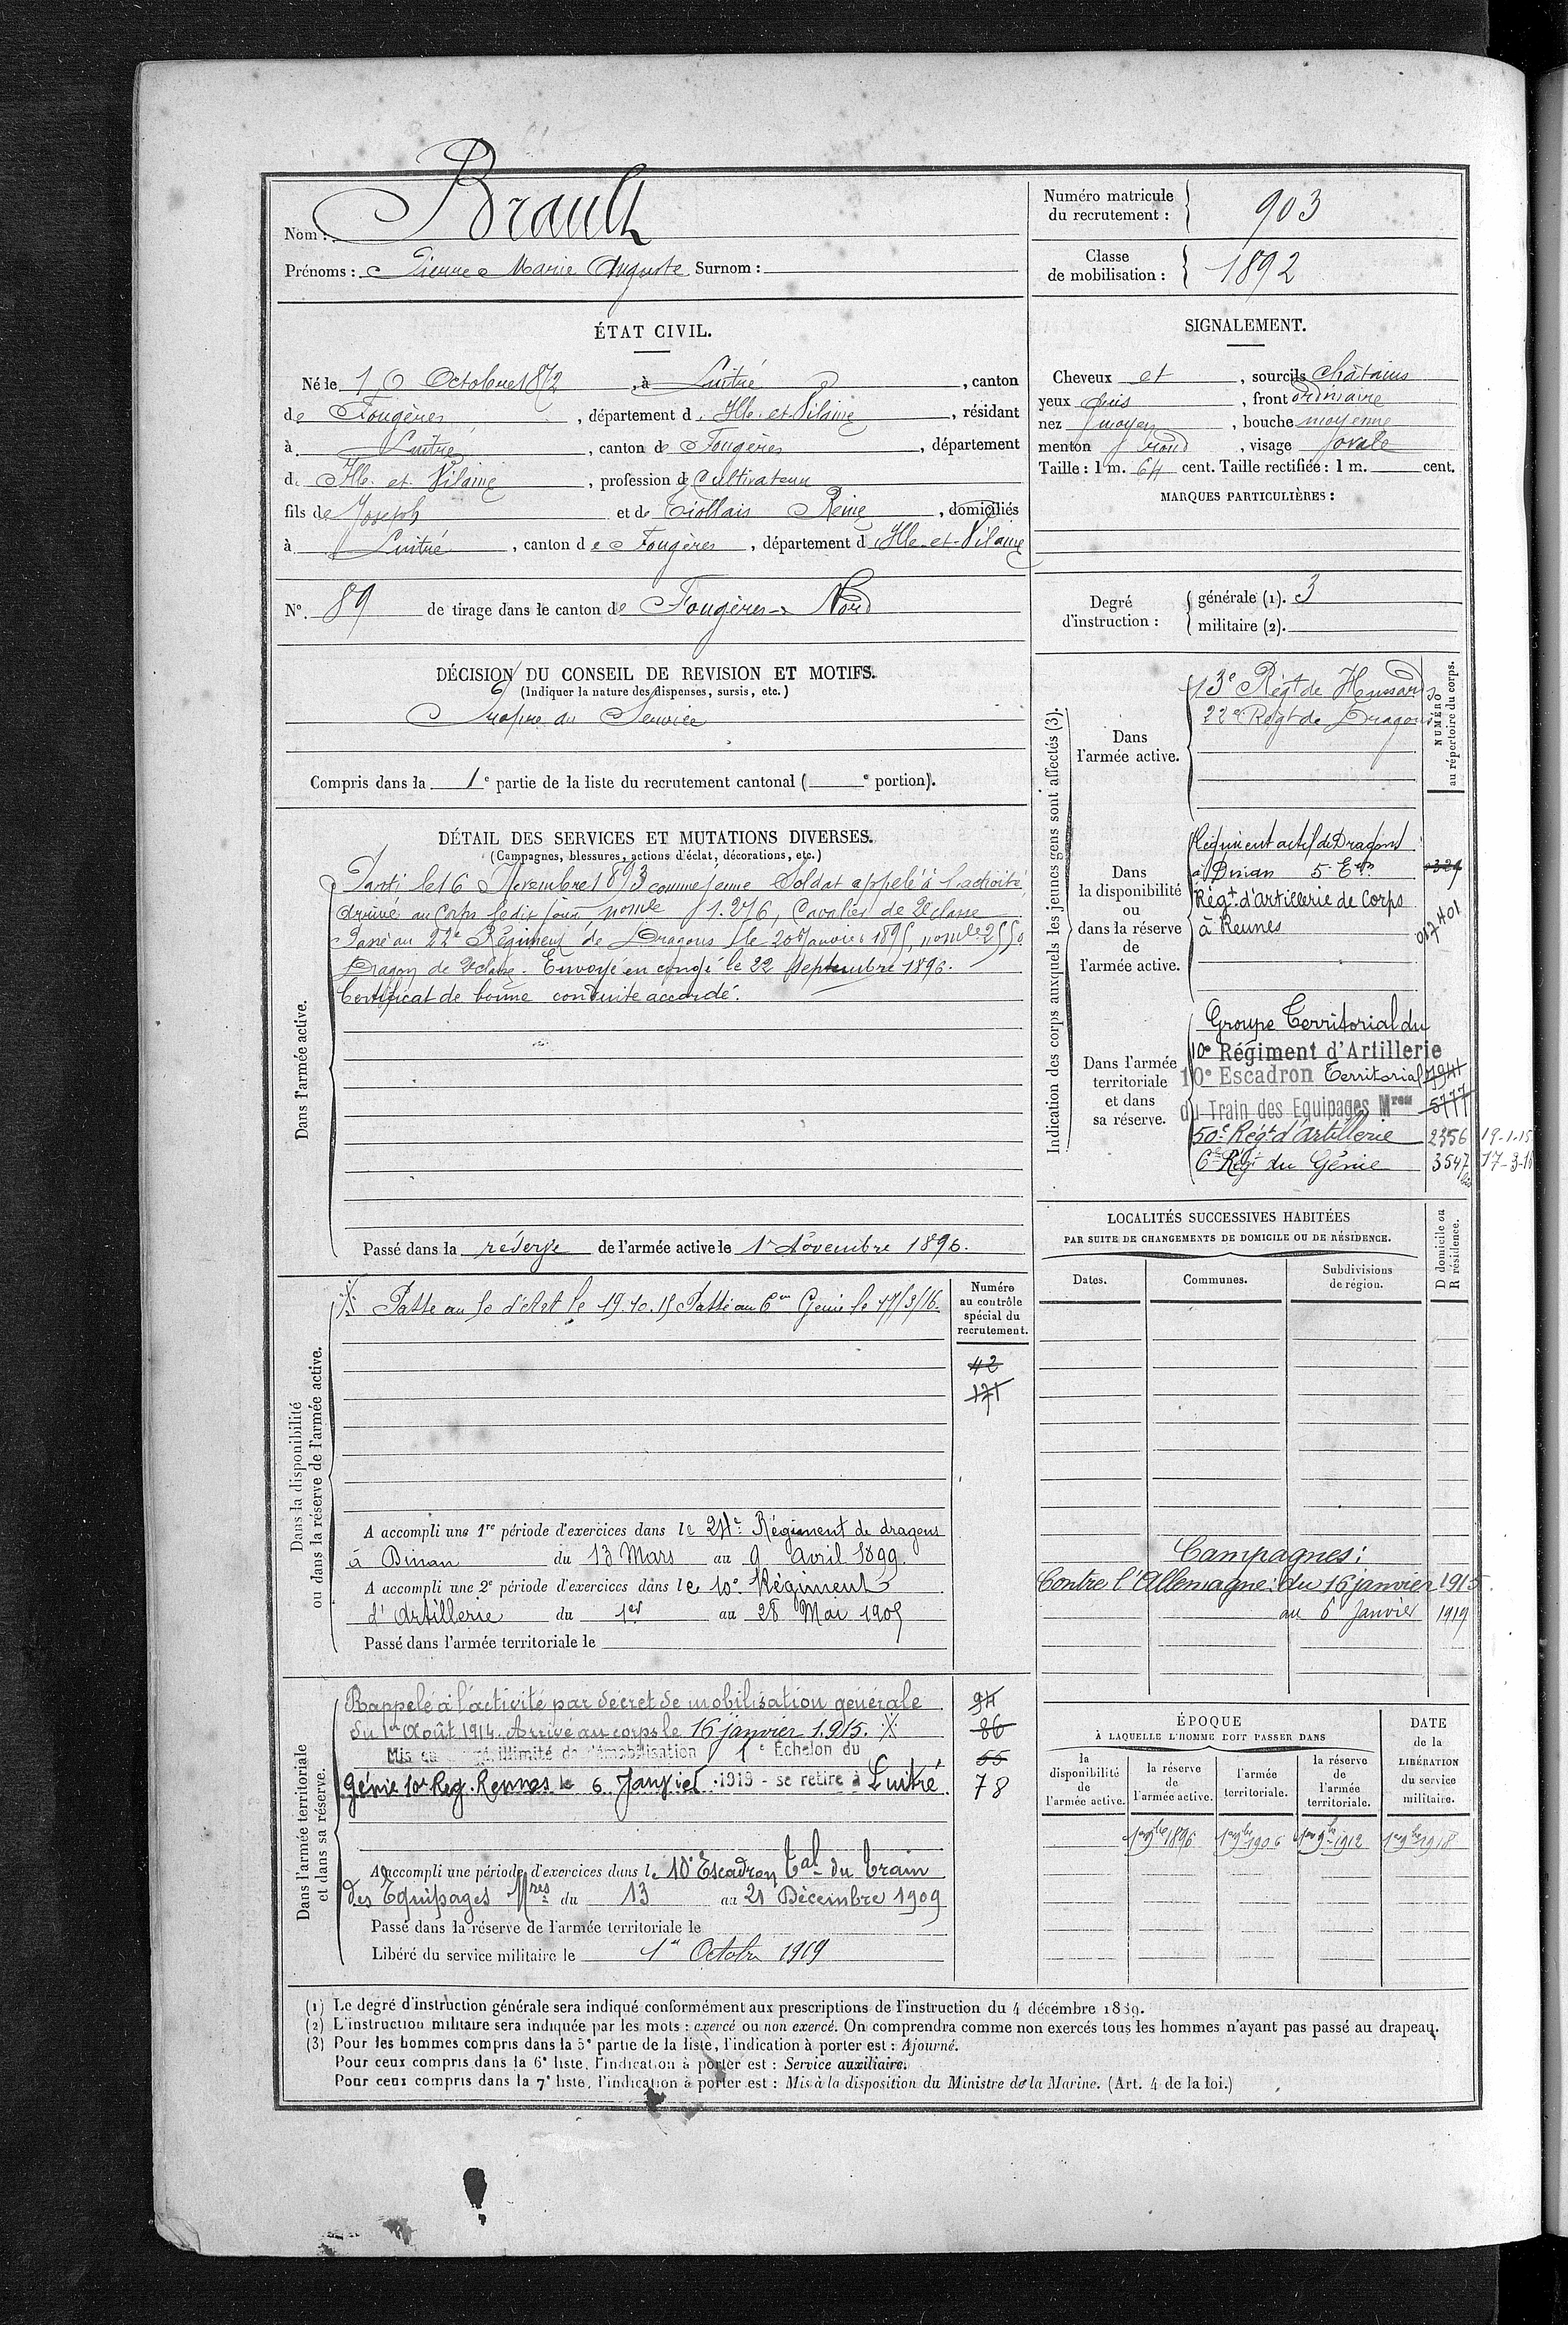 Nom : Brault
Prénoms : Pierre Marie Auguste Surnom :
Numéro matricule du recrutement : 903
Classe de mobilisation : 1892
ÉTAT CIVIL.
Né le 10 Octobre 1872, à Luitré, canton
de Fougères, département d'Ille-et-Vilaine, résidant
à Luitré, canton de Fougères, département
d'Ille-et-Vilaine, profession de Cultivateur
fils de Joseph et de Tiollais Reine, domiciliés
à Luitré, canton de Fougères, département d'Ille-et-Vilaine
N° 89 de tirage dans le canton de Fougères-Nord
SIGNALEMENT.
Cheveux et, sourcils châtains
yeux gris, front ordinaire
nez moyen, bouche moyenne
menton rond, visage ovale
Taille : 1 m. 64 cent. Taille rectifiée : 1 m. cent.
MARQUES PARTICULIÈRES :
Degré d'instruction : générale (1). 3
militaire (2).
DÉCISION DU CONSEIL DE REVISION ET MOTIFS.
(Indiquer la nature des dispenses, sursis, etc.)
Propre au Service
Compris dans la 1e partie de la liste du recrutement cantonal ( e portion).
DÉTAIL DES SERVICES ET MUTATIONS DIVERSES.
(Campagnes, blessures, actions d'éclat, décorations, etc.)
Dans l'armée active.
Parti le 16 Novembre 1893 comme jeune Soldat appelé à l'activité,
Arrivé au Corps le dit jour, nomle 1.276, Cavalier de 2e classe
Passé au 22e Régiment de Dragons le 20 Janvier 1895, nomle 2550
Dragon de 2e classe. Envoyé en congé le 22 Septembre 1896.
Certificat de bonne conduite accordé.
Passé dans la réserve de l'armée active le 1er Novembre 1896.
Indication des corps auxquels les jeunes gens sont affectés (3).
NUMÉRO au répertoire du corps.
Dans l'armée active.
13e Régt de Hussards
22e Régt de Dragons
Dans la disponibilité ou dans la réserve de l'armée active.
Régiment actif de Dragons
à Dinan 5e Eon 329
Régt d'Artillerie de Corps
à Rennes 017401
Dans l'armée territoriale et dans sa réserve.
Groupe Territorial du
10e Régiment d'Artillerie
10e Escadron Territorial 7941
du Train des Equipages Mres 5777
50e Régt d'Artillerie 2356 19-1-15
6e Régt du Génie 3547 bis 17-3-16
Dans la disponibilité ou dans la réserve de l'armée active.
Passé au 6em Génie le 17/3/16.
Numéro au contrôle spécial du recrutement.
42
171
A accompli une 1re période d'exercices dans le 24e Régiment de dragons
à Dinan du 13 Mars au 9 Avril 1899.
A accompli une 2e période d'exercices dans le 10e Régiment
d'Artillerie du 1er au 28 Mai 1905
Passé dans l'armée territoriale le
LOCALITÉS SUCCESSIVES HABITÉES
PAR SUITE DE CHANGEMENTS DE DOMICILE OU DE RÉSIDENCE.
Dates. Communes. Subdivisions de région. D domicile ou R résidence.
Campagnes :
Contre l'Allemagne : du 16 janvier 1915
au 6 Janvier 1919
Dans l'armée territoriale et dans sa réserve.
Rappelé à l'activité par décret de mobilisation générale
du 1er Août 1914. Arrivé au corps le 16 janvier 1915.
Mis en congé illimité de démobilisation 1e Echelon du
Génie 10e Rég. Rennes le 6 Janvier 1919 - se retire à Luitré.
94
86
55
78
A accompli une période d'exercices dans le 10e Escadron Tal du Train
des Equipages Mres du 13 au 21 Décembre 1909
Passé dans la réserve de l'armée territoriale le
Libéré du service militaire le 1er Octobre 1919
ÉPOQUE
À LAQUELLE L'HOMME DOIT PASSER DANS
la disponibilité de l'armée active.
la réserve de l'armée active.
l'armée territoriale.
la réserve de l'armée territoriale.
DATE de la LIBÉRATION du service militaire.
1er 9bre 1896 1er 9bre 1906 1er 9bre 1912 1er 9bre 1918
(1) Le degré d'instruction générale sera indiqué conformément aux prescriptions de l'instruction du 4 décembre 1889.
(2) L'instruction militaire sera indiquée par les mots : exercé ou non exercé. On comprendra comme non exercés tous les hommes n'ayant pas passé au drapeau.
(3) Pour les hommes compris dans la 5e partie de la liste, l'indication à porter est : Ajourné.
Pour ceux compris dans la 6e liste, l'indication à porter est : Service auxiliaire.
Pour ceux compris dans la 7e liste, l'indication à porter est : Mis à la disposition du Ministre de la Marine. (Art. 4 de la loi.)